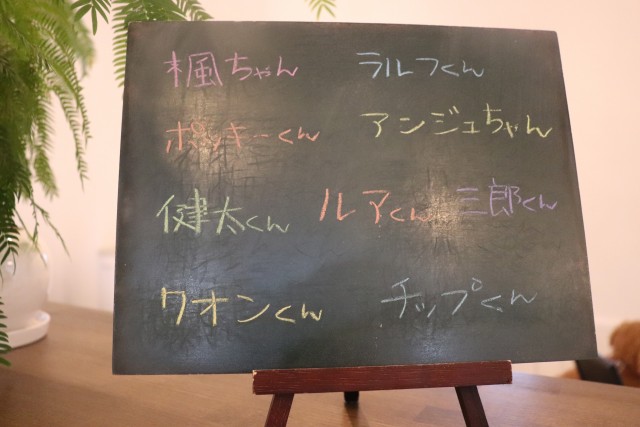 楓ちゃん ラルフくん
ポッキーくん アンジュちゃん
健太くん ルアくん 三郎くん
クオンくん チップくん